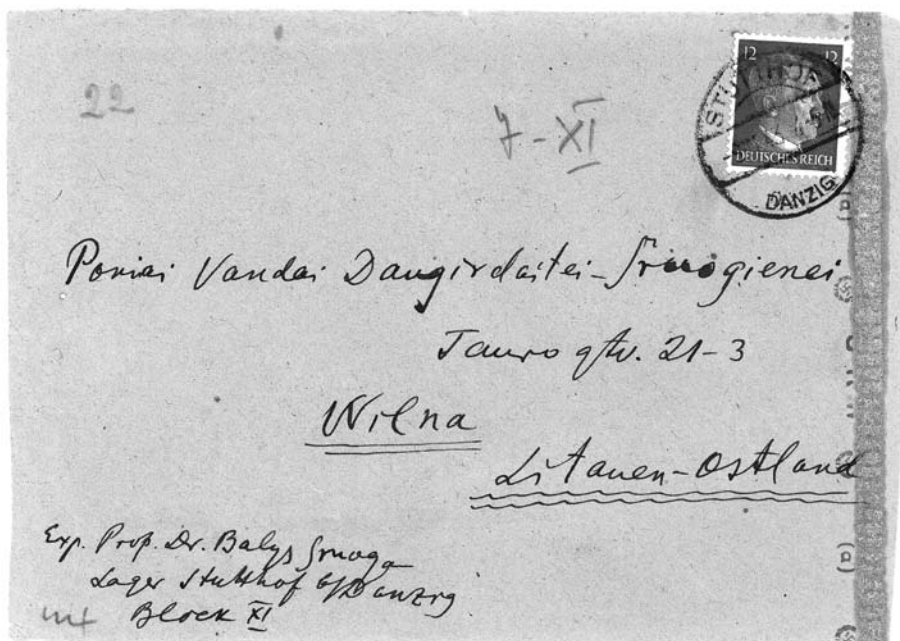 22
7-XI
12 12
DEUTSCHES REICH
STUTTHOF
DANZIG
(a)
Poniai Vandai Daugirdaitei-Sruogienei
Tauro gtv. 21-3
Wilna
Litauen-Ostland
Exp. Prof. Dr. Balys Sruoga
Lager Stutthof b/Danzig
Block XI
(a)